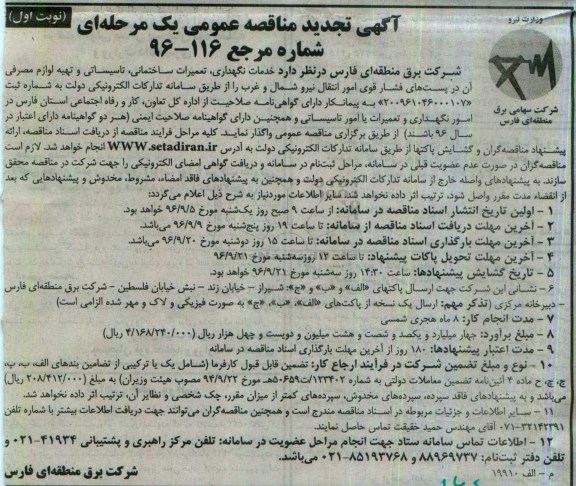 (نوبت اول)
وزارت نیرو
آگهی تجدید مناقصه عمومی یک مرحله‌ای
شماره مرجع ۱۱۶-۹۶
شرکت سهامی برق
منطقه‌ای فارس
شرکت برق منطقه‌ای فارس درنظر دارد خدمات نگهداری، تعمیرات ساختمانی، تاسیساتی و تهیه لوازم مصرفی
آن در پست‌های فشار قوی امور انتقال نیرو شمال و غرب را از طریق سامانه تدارکات الکترونیکی دولت به شماره ثبت
«۲۰۰۹۶۱۰۴۶۰۰۰۱۰۷» به پیمانکار دارای گواهی‌نامه صلاحیت از اداره کل تعاون، کار و رفاه اجتماعی استان فارس در
امور نگهداری و تعمیرات یا امور تاسیساتی و همچنین دارای گواهینامه صلاحیت ایمنی (هر دو گواهینامه دارای اعتبار در
سال ۹۶ باشند) از طریق برگزاری مناقصه عمومی واگذار نماید. کلیه مراحل فرایند مناقصه از دریافت اسناد مناقصه، ارائه
پیشنهاد مناقصه‌گران و گشایش پاکتها از طریق سامانه تدارکات الکترونیکی دولت به آدرس WWW.setadiran.ir انجام خواهد شد. لازم است
مناقصه‌گران در صورت عدم عضویت قبلی در سامانه، مراحل ثبت‌نام در سامانه و دریافت گواهی امضای الکترونیکی را جهت شرکت در مناقصه محقق
سازند. به پیشنهادهای واصله خارج از سامانه تدارکات الکترونیکی دولت و همچنین به پیشنهادهای فاقد امضاء، مشروط، مخدوش و پیشنهادهایی که بعد
از انقضاء مدت مقرر واصل شود، ترتیب اثر داده نخواهد شد. سایر اطلاعات موردنیاز به شرح ذیل اعلام می‌گردد:
۱ - اولین تاریخ انتشار اسناد مناقصه در سامانه: از ساعت ۹ صبح روز یک‌شنبه مورخ ۹۶/۹/۵ خواهد بود.
۲ - آخرین مهلت دریافت اسناد مناقصه از سامانه: تا ساعت ۱۹ روز پنج‌شنبه مورخ ۹۶/۹/۹ می‌باشد.
۳ - آخرین مهلت بارگذاری اسناد مناقصه در سامانه: تا ساعت ۱۵ روز دوشنبه مورخ ۹۶/۹/۲۰ می‌باشد.
۴ - آخرین مهلت تحویل پاکات پیشنهاد: تا ساعت ۱۲ روز سه‌شنبه مورخ ۹۶/۹/۲۱
۵ - تاریخ گشایش پیشنهادها: ساعت ۱۴:۳۰ روز سه‌شنبه مورخ ۹۶/۹/۲۱ خواهد بود.
۶ - نشانی این شرکت جهت ارسال پاکتهای «الف» و «ب» و «ج»: شیراز - خیابان زند - نبش خیابان فلسطین - شرکت برق منطقه‌ای فارس
- دبیرخانه مرکزی (تذکر مهم: ارسال یک نسخه از پاکت‌های «الف»، «ب»، «ج» به صورت فیزیکی و لاک و مهر شده الزامی است)
۷ - مدت انجام کار: ۸ ماه هجری شمسی
۸ - مبلغ برآورد: چهار میلیارد و یکصد و شصت و هشت میلیون و دویست و چهل هزار ریال (۴/۱۶۸/۲۴۰/۰۰۰ ریال)
۹ - مدت اعتبار پیشنهادها: ۱۸۰ روز از آخرین مهلت بارگذاری اسناد مناقصه در سامانه
۱۰ - نوع و مبلغ تضمین شرکت در فرآیند ارجاع کار: تضمین قابل قبول کارفرما (شامل یک یا ترکیبی از تضامین بندهای الف، ب، پ،
ج، چ، ح ماده ۴ آئین‌نامه تضمین معاملات دولتی به شماره ۱۲۳۴۰۲/ت۵۰۶۵۹هـ مورخ ۹۴/۹/۲۲ مصوب هیئت وزیران) به مبلغ (۲۰۸/۴۱۲/۰۰۰ ریال)
می‌باشد و به پیشنهادهای فاقد سپرده، سپرده‌های مخدوش، سپرده‌های کمتر از میزان مقرر، چک شخصی و نظایر آن، ترتیب اثر داده نخواهد شد.
۱۱ - سایر اطلاعات و جزئیات مربوطه در اسناد مناقصه مندرج است و همچنین مناقصه‌گران می‌توانند جهت دریافت اطلاعات بیشتر با شماره تلفن
۰۷۱-۳۲۱۴۲۳۹۱ آقای مهندس حمید حقیقت تماس حاصل نمایند.
۱۲ - اطلاعات تماس سامانه ستاد جهت انجام مراحل عضویت در سامانه: تلفن مرکز راهبری و پشتیبانی ۴۱۹۳۴-۰۲۱ و
تلفن دفتر ثبت‌نام: ۸۸۹۶۹۷۳۷ و ۸۵۱۹۳۷۶۸-۰۲۱ می‌باشد.
م - الف ۱۹۹۱۰
شرکت برق منطقه‌ای فارس